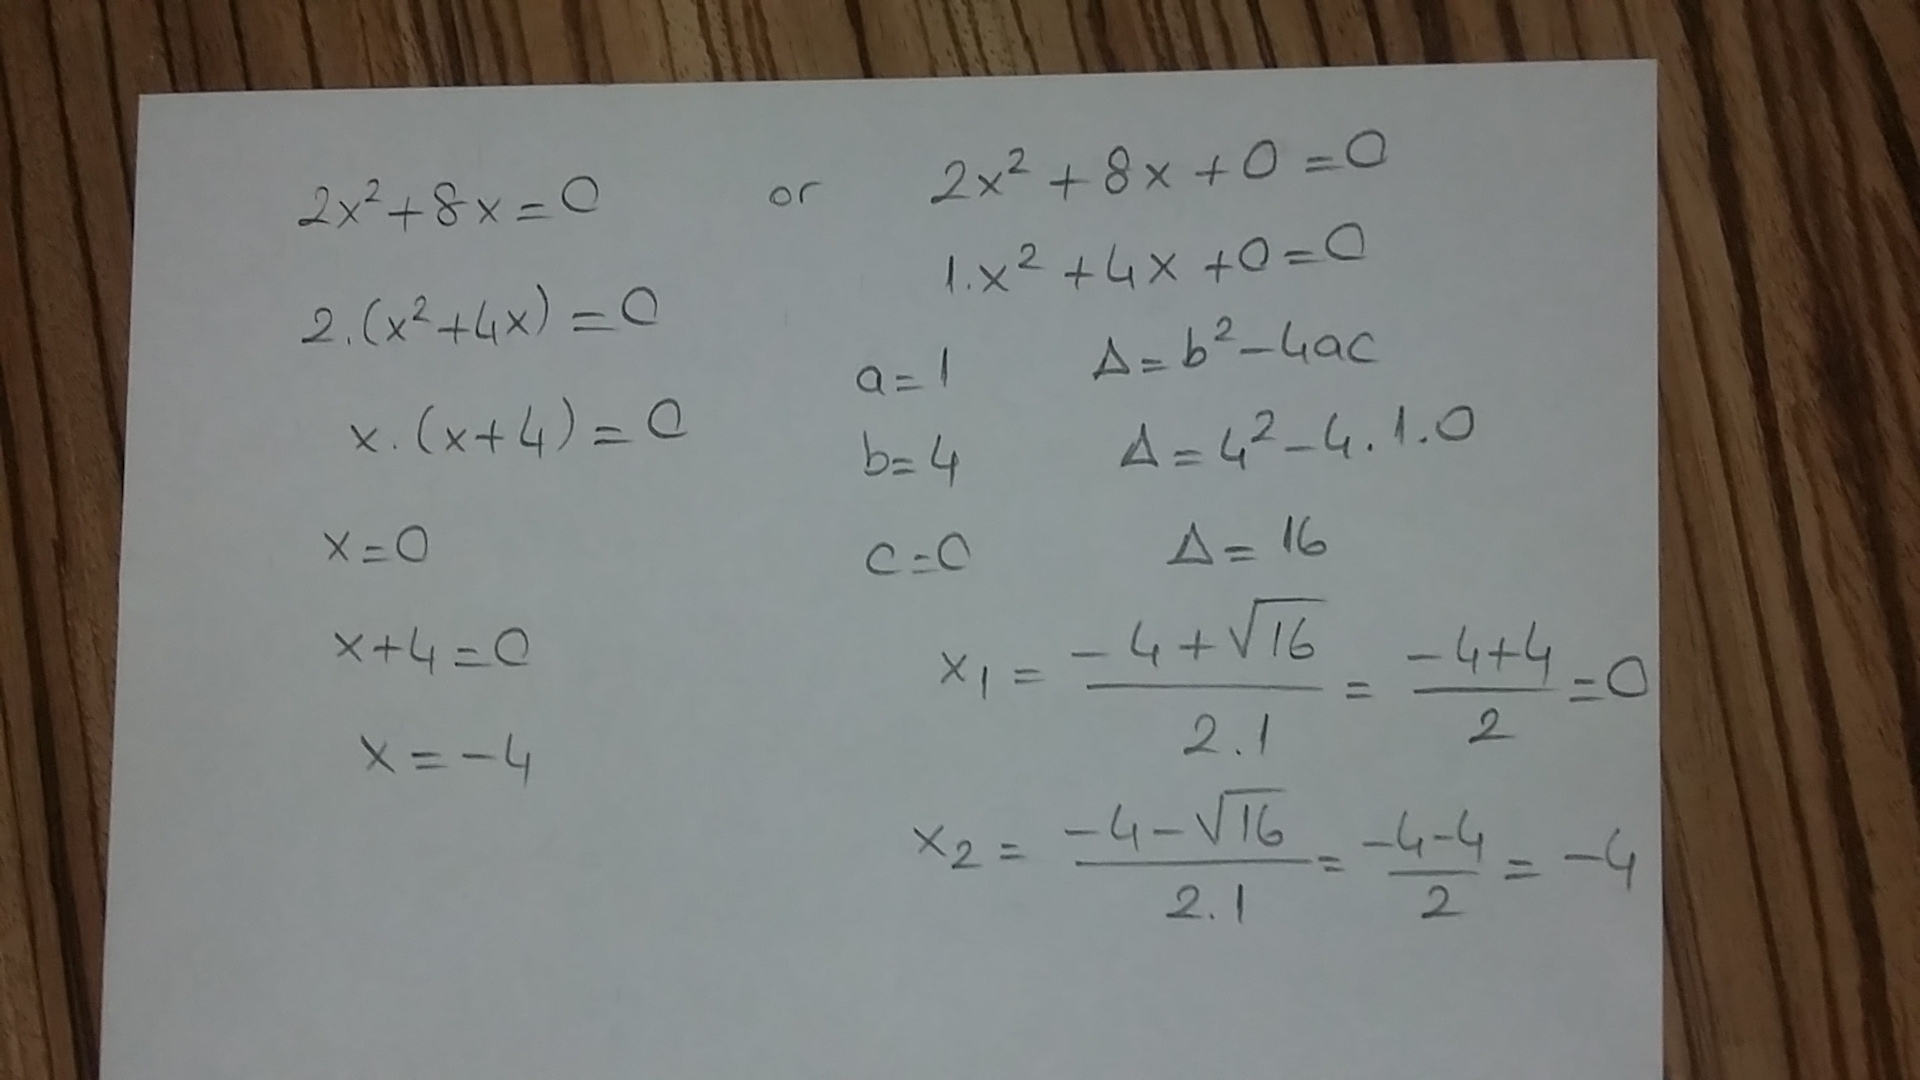 2x²+8x=0
2.(x²+4x)=0
x.(x+4)=0
x=0
x+4=0
x=-4
or
2x²+8x+0=0
1.x²+4x+0=0
a=1
b=4
c=0
Δ=b²-4ac
Δ=4²-4.1.0
Δ=16
x₁ = (-4+√16)/(2.1) = (-4+4)/2 = 0
x₂ = (-4-√16)/(2.1) = (-4-4)/2 = -4